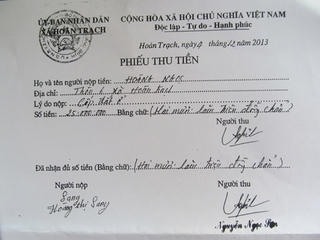 ỦY BAN NHÂN DÂN
XÃ HOÀN TRẠCH
CỘNG HÒA XÃ HỘI CHỦ NGHĨA VIỆT NAM
Độc lập - Tự do - Hạnh phúc
Hoàn Trạch, ngày 4 tháng 12 năm 2013
PHIẾU THU TIỀN
Họ và tên người nộp tiền: HOÀNG
Địa chỉ: Thôn 6 xã Hoàn Trạch
Lý do nộp: Cấp đất ở
Số tiền: 25.000.000 Bằng chữ: (Hai mươi lăm triệu đồng chẵn)
Người thu
Đã nhận đủ số tiền (Bằng chữ): (Hai mươi lăm triệu đồng chẵn)
Người nộp
Người thu
Sang
Hoàng Thị Sang
Nguyễn Ngọc